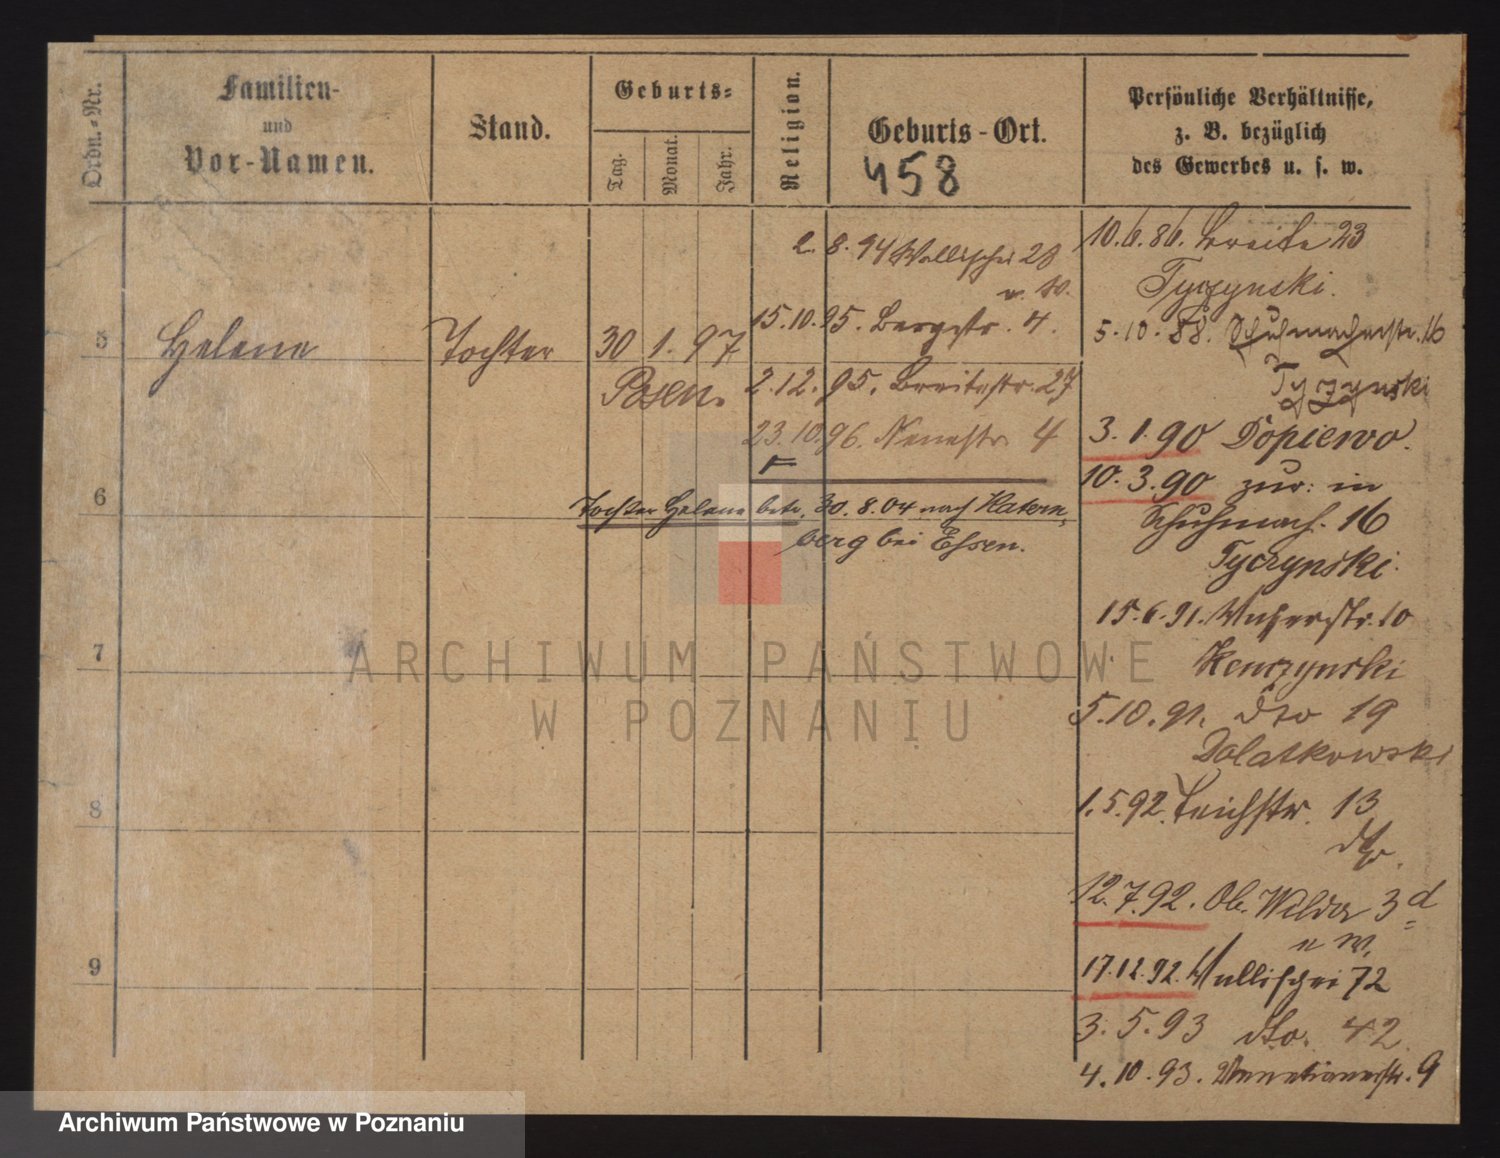 Ordn.-Nr.
Familien-
und
Vor-Namen.
Stand.
Geburts-
Tag.
Monat.
Jahr.
Religion.
Geburts-Ort.
458
Persönliche Verhältnisse,
z. B. bezüglich
des Gewerbes u. s. w.
5
Helene
Tochter
30 1. 97
Posen.
6
7
8
9
2. 8. 94 Wallischei 28
15.10.95. Bergstr. 4.
2.12.95. Breitestr. 27
23.10.96. Neuestr. 4
Tochter Helene 30.8.04 nach Katern-
berg bei Essen.
10.6.86. Breite 23
Tyczynski.
5.10.88. Schuhmacherstr. 16
Tyczynski
3.1.90 Dopiewo.
10.3.90 zur: in
Schuhmach. 16
Tyczynski.
15.6.91. 10
5.10.91. dto 19
Dolatkowski
1.5.92. Teichstr. 13
dto.
12.7.92. Ob. Wilda 3d
17.12.92. Wallischei 72
3.5.93 dto. 42
4.10.93. Venetianerstr. 9
ARCHIWUM PAŃSTWOWE
W POZNANIU
Archiwum Państwowe w Poznaniu